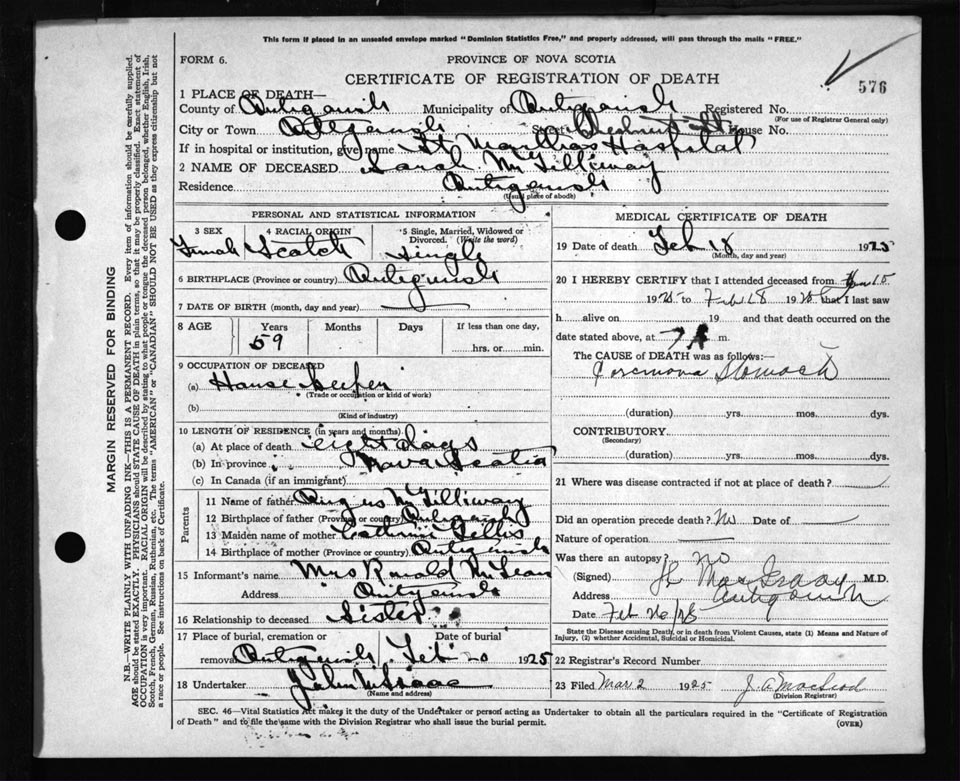 This form if placed in an unsealed envelope marked "Dominion Statistics Free," and properly addressed, will pass through the mails "FREE."
FORM 6.
PROVINCE OF NOVA SCOTIA
CERTIFICATE OF REGISTRATION OF DEATH
576
1 PLACE OF DEATH—
County of Antigonish Municipality of Antigonish Registered No.
(For use of Registrar General only)
City or Town Antigonish Street House No.
If in hospital or institution, give name St Marthas Hospital
2 NAME OF DECEASED Sarah McGillivray
Residence Antigonish
(Usual place of abode)
PERSONAL AND STATISTICAL INFORMATION
3 SEX 4 RACIAL ORIGIN 5 Single, Married, Widowed or Divorced. (Write the word)
Female Scotch Single
6 BIRTHPLACE (Province or country) Antigonish
7 DATE OF BIRTH (month, day and year)
8 AGE Years Months Days If less than one day,
59 hrs. or min.
9 OCCUPATION OF DECEASED
(a) House Keeper
(Trade or occupation or kind of work)
(b)
(Kind of industry)
10 LENGTH OF RESIDENCE (in years and months).
(a) At place of death eight days
(b) In province Nova Scotia
(c) In Canada (if an immigrant)
Parents
11 Name of father Angus McGillivray
12 Birthplace of father (Province or country) Antigonish
13 Maiden name of mother Catherine Gillis
14 Birthplace of mother (Province or country) Antigonish
15 Informant's name Mrs Ronald McLean
Address Antigonish
16 Relationship to deceased Sister
17 Place of burial, cremation or removal Date of burial
Antigonish Feb 20 1925
18 Undertaker John McIsaac
(Name and address)
MEDICAL CERTIFICATE OF DEATH
19 Date of death Feb 18 1925
(Month, day and year)
20 I HEREBY CERTIFY that I attended deceased from 15
1925 to Feb 18 1925 that I last saw
h alive on 19 and that death occurred on
date stated above, at 7 A m.
The CAUSE of DEATH was as follows:—
Carcinoma Stomach
(duration) yrs. mos. dys.
CONTRIBUTORY
(Secondary)
(duration) yrs. mos. dys.
21 Where was disease contracted if not at place of death?
Did an operation precede death? No Date of
Nature of operation
Was there an autopsy? No
(Signed) M.D.
Address Antigonish
Date Feb
State the Disease causing Death, or in death from Violent Causes, state (1) Means and Nature of
Injury, (2) whether Accidental, Suicidal or Homicidal.
22 Registrar's Record Number
23 Filed Mar 2 1925 J. A. MacLeod
(Division Registrar)
SEC. 46—Vital Statistics Act makes it the duty of the Undertaker or person acting as Undertaker to obtain all the particulars required in the "Certificate of Registration
of Death" and to file the same with the Division Registrar who shall issue the burial permit.
(OVER)
MARGIN RESERVED FOR BINDING
N.B.—WRITE PLAINLY WITH UNFADING INK—THIS IS A PERMANENT RECORD. Every item of information should be carefully supplied.
AGE should be stated EXACTLY. PHYSICIANS should STATE CAUSE OF DEATH in plain terms, so that it may be properly classified. Exact statement of
OCCUPATION is very important. RACIAL ORIGIN will be described by stating to what people or tongue the deceased person belonged, whether English, Irish,
Scotch, French, German, Russian, Ruthenian, etc. The terms "AMERICAN" or "CANADIAN" SHOULD NOT BE USED as they express citizenship but not
a race or people. See instructions on back of Certificate.